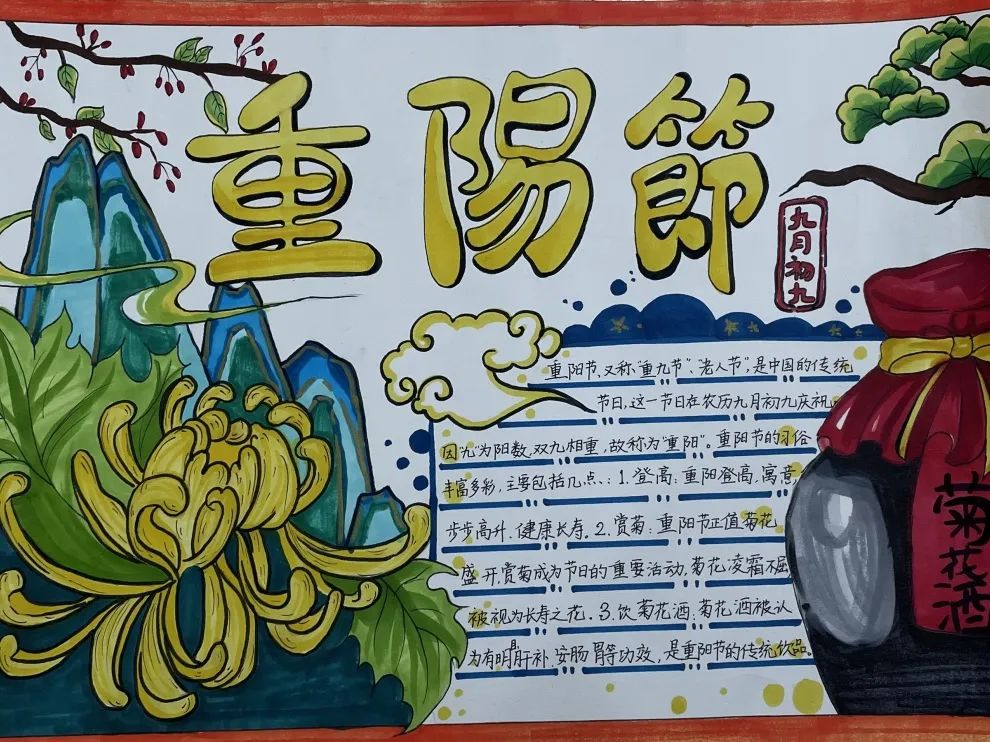 重陽節
九月初九
重阳节,又称"重九节"、"老人节",是中国的传统
节日,这一节日在农历九月初九庆祝
因"九"为阳数,双九相重,故称为"重阳"。重阳节的习俗
丰富多彩,主要包括几点、:1.登高:重阳登高,寓意
步步高升、健康长寿。2.赏菊:重阳节正值菊花
盛开,赏菊成为节日的重要活动,菊花凌霜不屈
被视为长寿之花。3.饮菊花酒:菊花酒被认
为有明肝补、安肠胃等功效,是重阳节的传统饮品
菊花酒